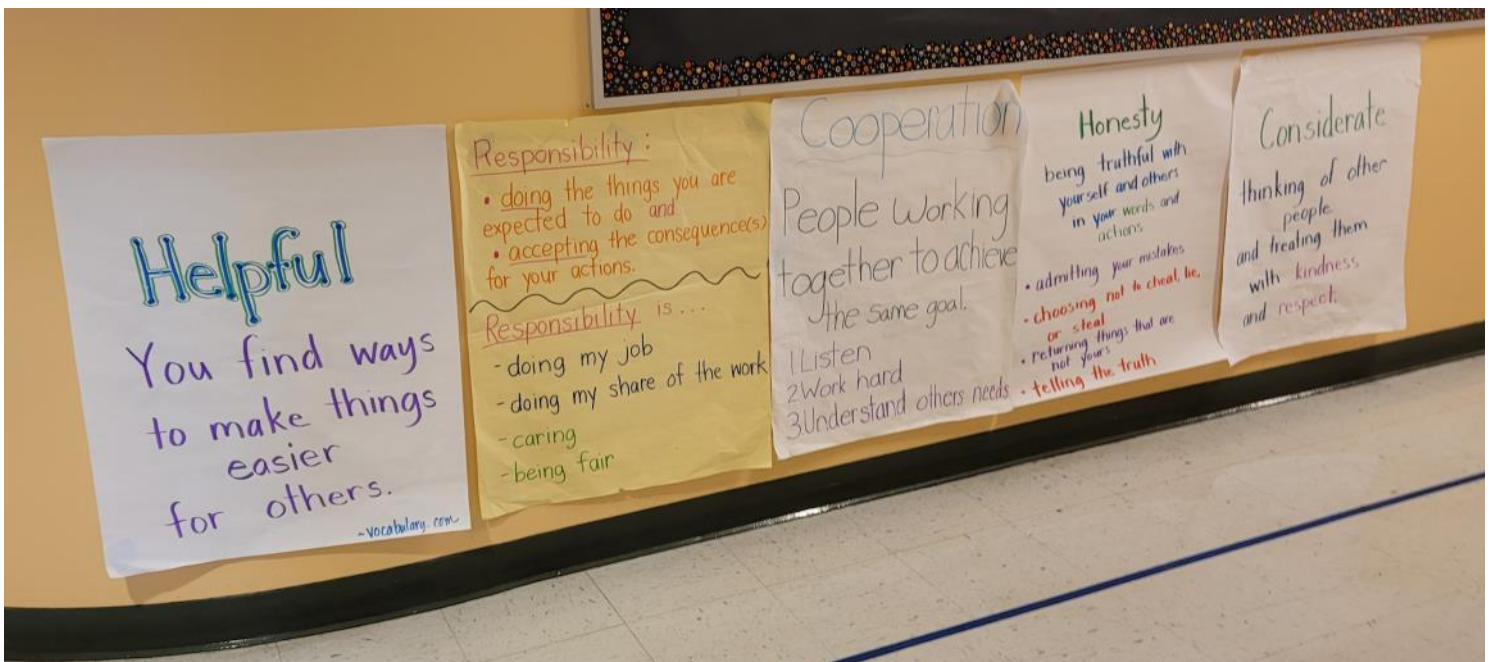 Helpful
You find ways
to make things
easier
for others.
~vocabulary.com
Responsibility:
• doing the things you are
expected to do and
• accepting the consequence(s)
for your actions.
Responsibility is...
- doing my job
- doing my share of the work
- caring
- being fair
Cooperation
People Working
together to achieve
the same goal.
1. Listen
2 Work hard
3. Understand others needs
Honesty
being truthful with
yourself and others
in your words and
actions
• admitting your mistakes
• choosing not to cheat, lie,
or steal
• returning things that are
not yours
• telling the truth
Considerate
thinking of other
people
and treating them
with kindness
and respect.